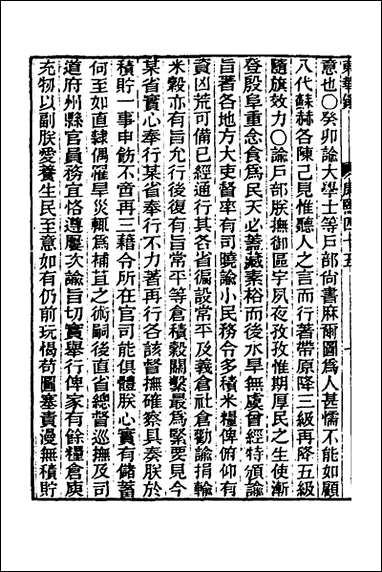 東華錄 康熙四十五
意也〇癸卯諭大學士等戶部尚書麻爾圖爲人甚懦不能如顧
八代蘇赫各陳己見惟聽人之言而行著帶原降三級再降五級
隨旗效力〇諭戶部朕撫御區宇夙夜孜孜惟期厚民之生使漸
登殷阜重念食爲民天必蓋藏素裕而後水旱無虞曾經特頒諭
旨著各地方大吏督率有司曉諭小民務令多積米糧俾俯仰有
資凶荒可備已經通行其各省徧設常平及義倉社倉勸諭捐輸
米穀亦有旨允行後復有旨常平等倉積穀關繫最爲緊要見今
某省實心奉行某省奉行不力著再行各該督撫確察具奏朕於
積貯一事申飭不啻再三藉令所在官司能俱體朕心實有儲蓄
何至如直隸偶罹旱災輒爲補苴之術嗣後直省總督巡撫及司
道府州縣官員務宜恪遵屢次諭旨切實舉行俾家有餘糧倉庾
充物以副朕愛養生民至意如有仍前玩愒苟圖塞責漫無積貯